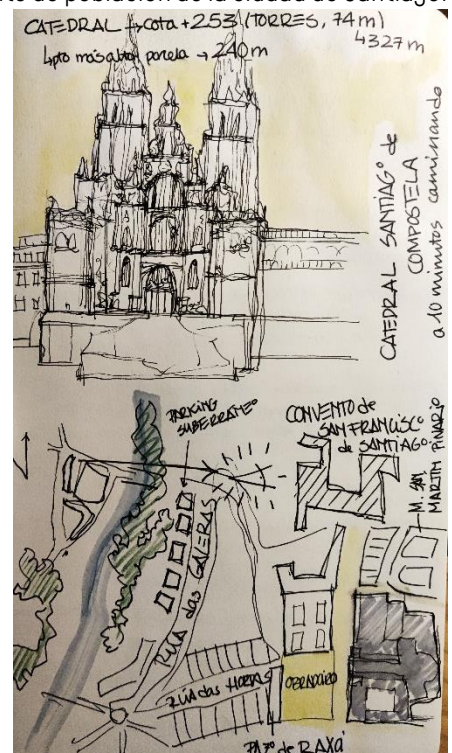 CATEDRAL → cota +253 (TORRES, 74 m)
↳ 327 m
↳ pto más alto parcela → 240 m
CATEDRAL SANTIAGº de
COMPOSTELA
a 10 minutos caminando
PARKING
SUBERRANEº
CONVENTO de
SAN FRANCISCº
de SANTIAGº
M. SAN
MARTIN PINARIO
RÚA das GALERAS
RÚA das HORTAS
OBRADOIRO
PAZº de RAXOI